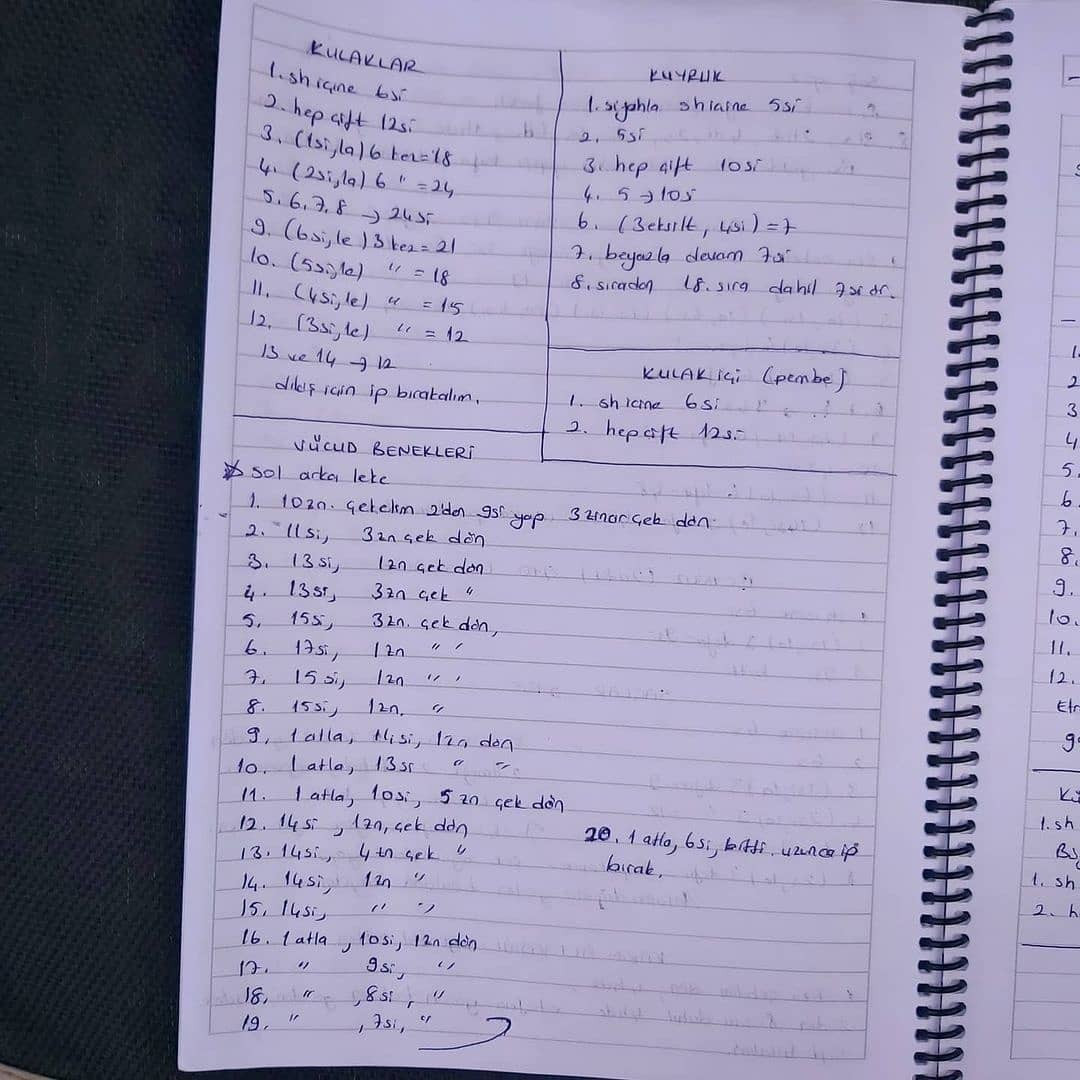 KULAKLAR
1. sh içine 6si
2. hep çift 12si
3. (1si,1a) 6 kez=18
4. (2si,1a) 6 " =24
5.6.7.8 → 24si
9. (6si,1e) 3 kez=21
10. (5si,1e) " =18
11. (4si,1e) " =15
12. (3si,1e) " =12
13 ve 14 → 12
dikiş için ip bırakalım.
KUYRUK
1. siyahla sh içine 5si
2. 5si
3. hep çift 10si
4. 5 → 10s
6. (3eksilt, 4si) = 7
7. beyazla devam 7si
8. sıradan 18. sıra dahil 7si ör.
KULAK içi (pembe)
1. sh içine 6si
2. hep çift 12si
VÜCUD BENEKLERİ
sol arka leke
1. 10zn. çekelim 2'den 9si yap 3 zincir çek dön
2. 11si, 3zn çek dön
3. 13si, 1zn çek dön
4. 13si, 3zn çek "
5. 15si, 3zn. çek dön,
6. 17si, 1zn " "
7. 15si, 1zn " "
8. 15si, 1zn. "
9. 1 atla, 14si, 1zn dön
10. 1 atla, 13si " "
11. 1 atla, 10si, 5 zn çek dön
12. 14si, 1zn, çek dön
13. 14si, 4zn çek "
14. 14si, 1zn "
15. 14si, " "
16. 1 atla, 10si, 1zn dön
17. " 9si, "
18. " , 8si, "
19. " , 7si, "
20. 1 atla, 6si, bitti. uzunca ip
bırak.
1. sh
2. h